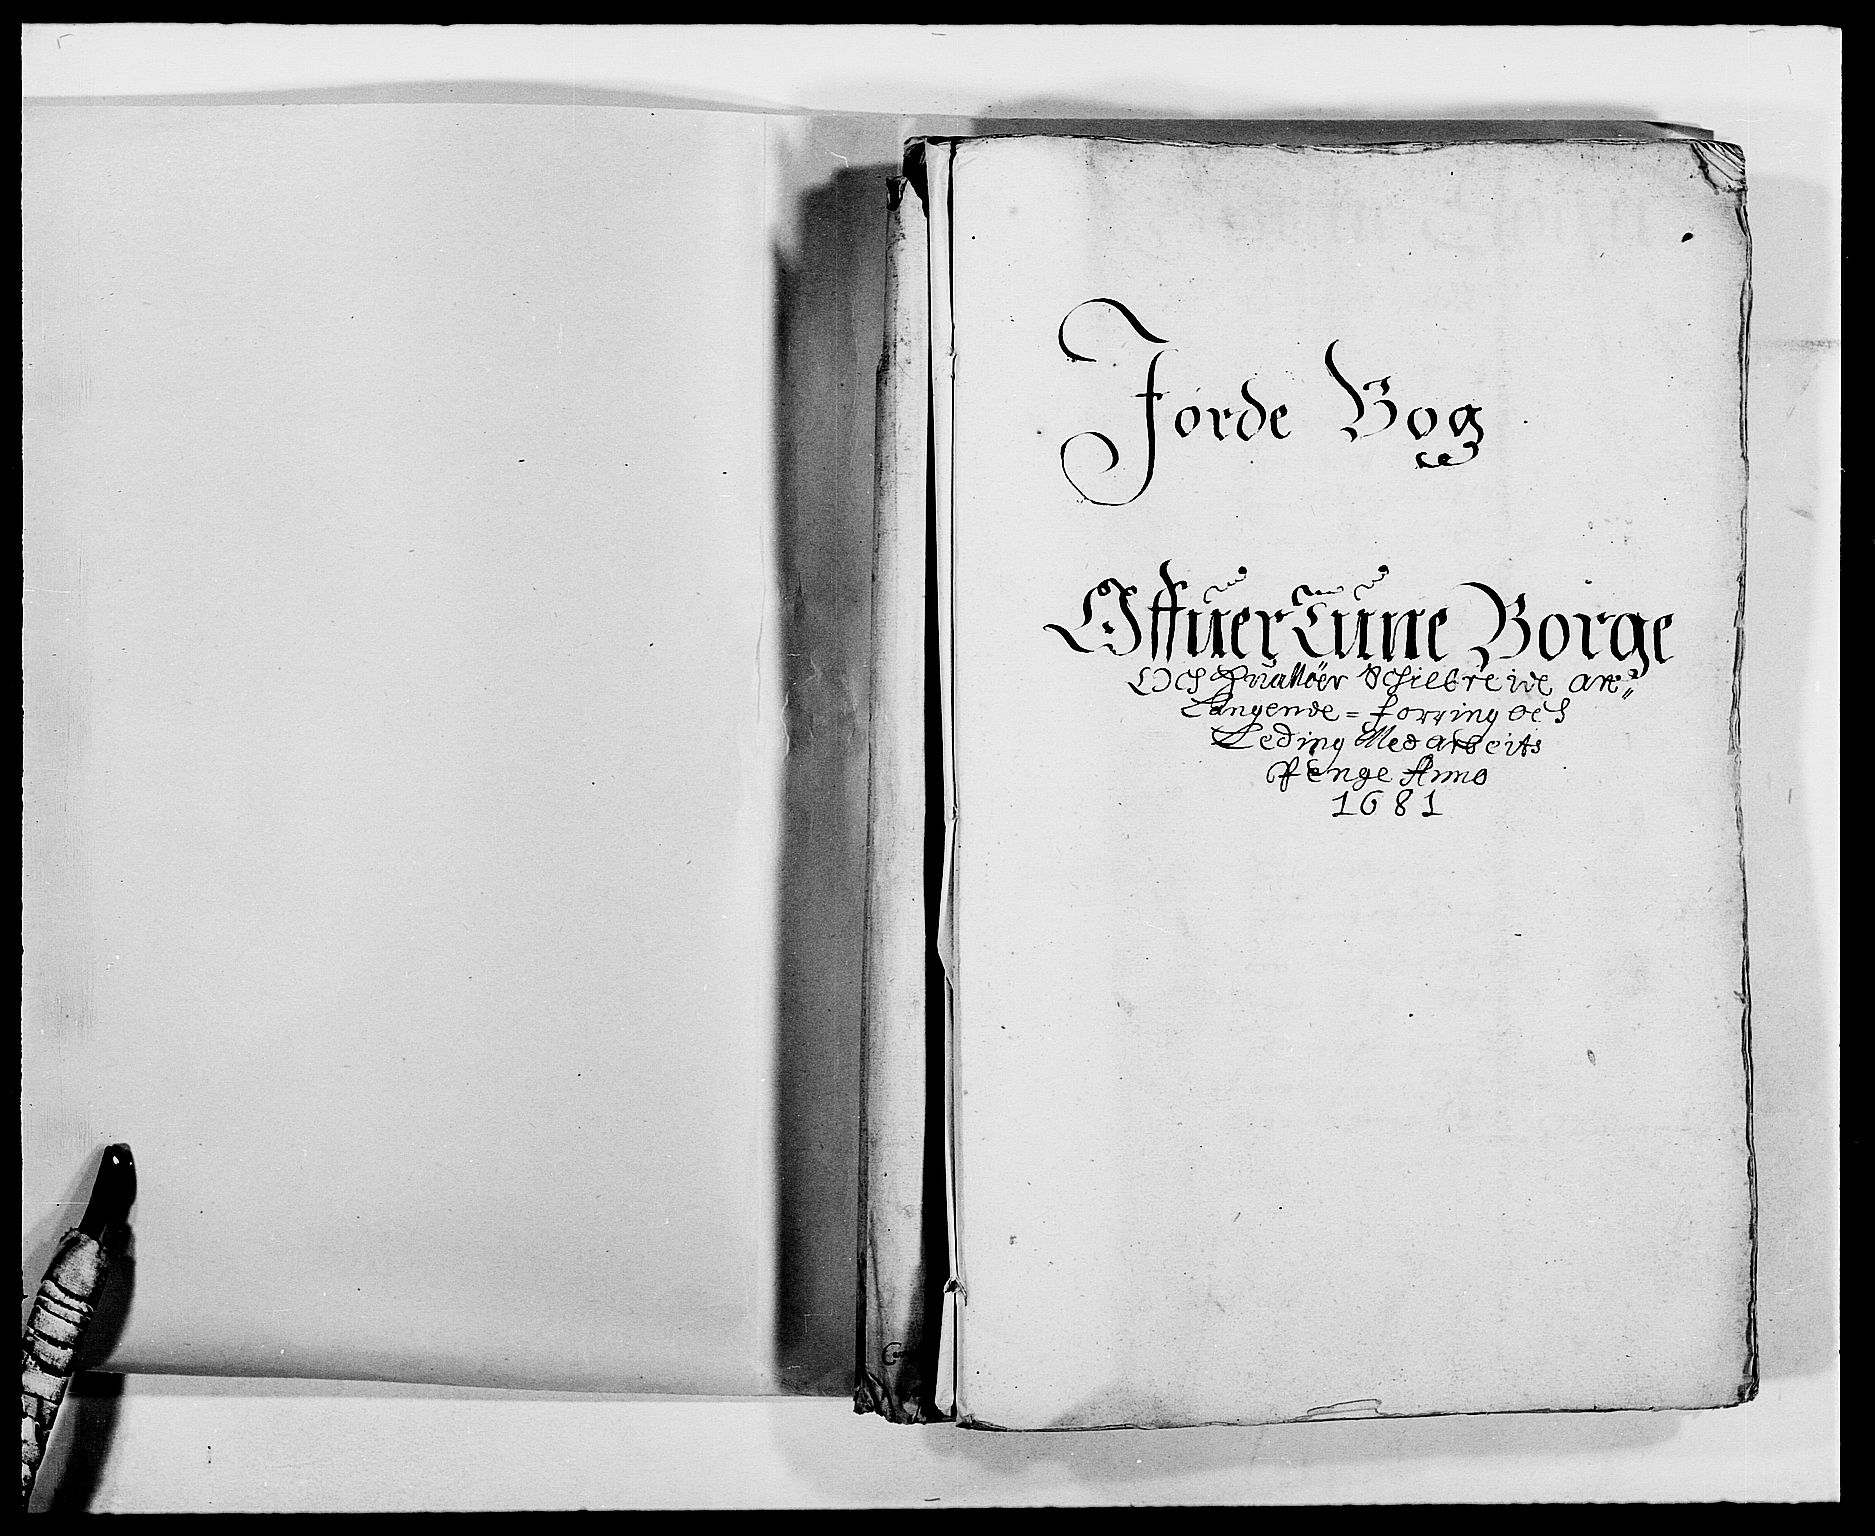 Jorde Bog
Offuer Tune Borge
Och Huallöer Schibreide an=
Langende = forring och
Leding Med arbeits
Penge Anno
1681